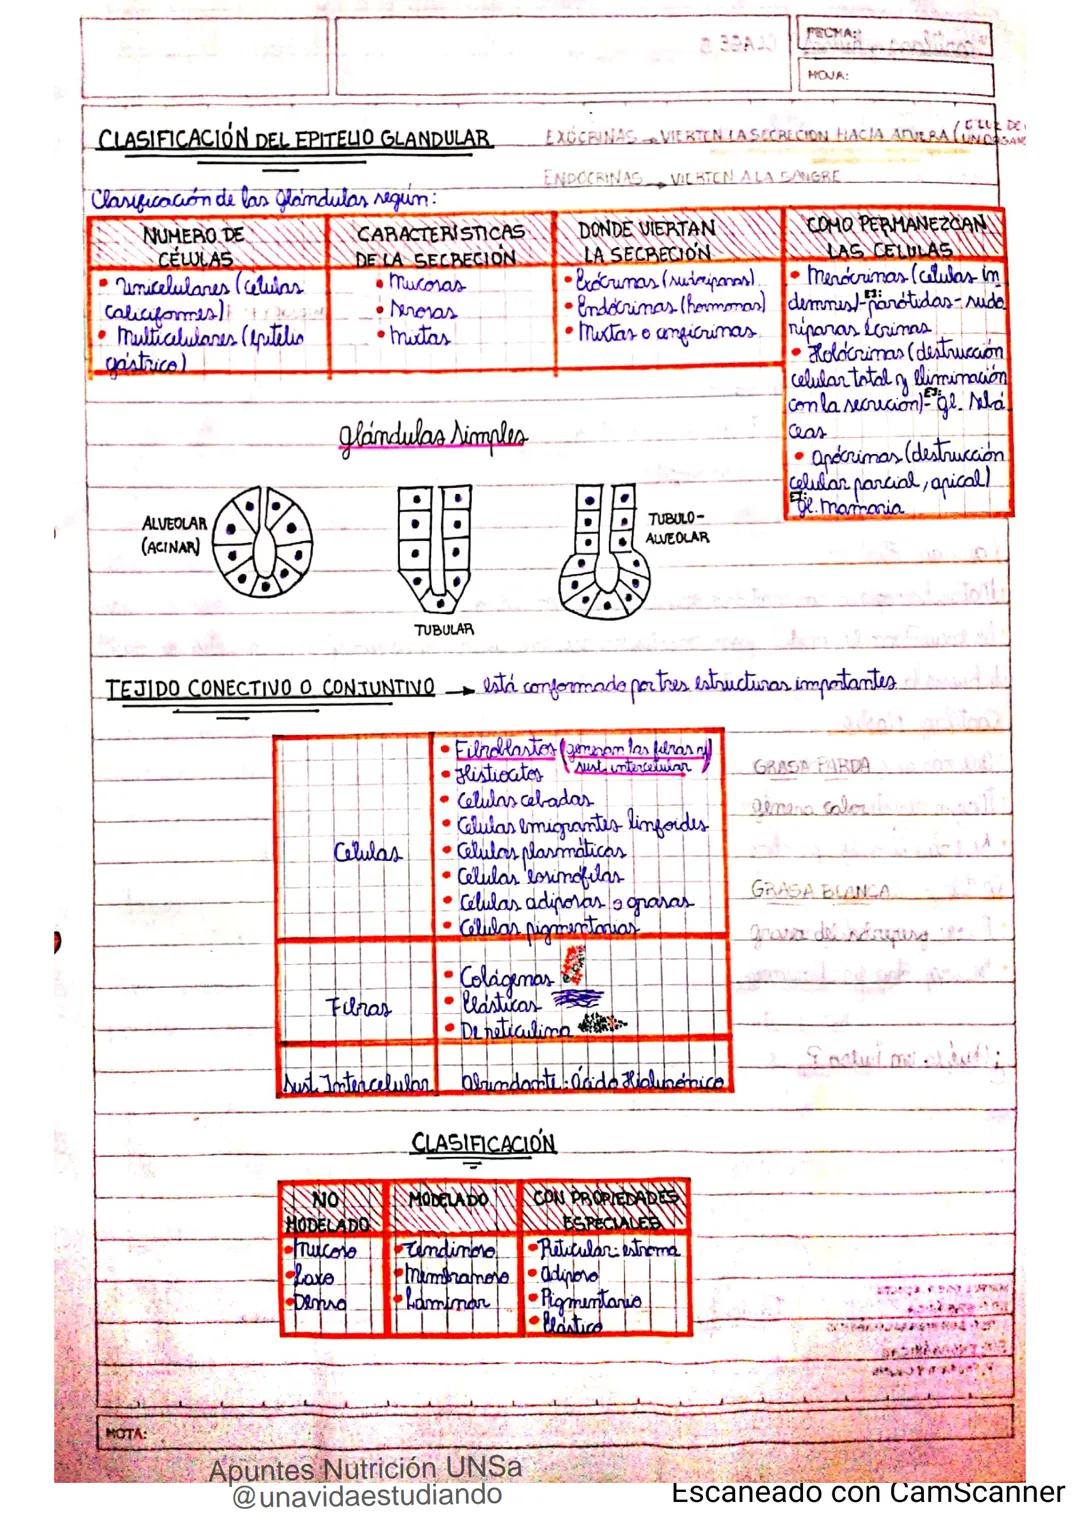 FECHA:
HOJA:
CLASIFICACIÓN DEL EPITELIO GLANDULAR
EXÓCRINAS → VIERTEN LA SECRECION HACIA AFUERA
ENDOCRINAS → VIERTEN A LA SANGRE
Clasificación de las glándulas según:
NUMERO DE
CÉLULAS
• Unicelulares (células
caliciformes)
• Multicelulares (epitelio
gástrico)
CARACTERÍSTICAS
DE LA SECRECIÓN
• Mucosas
• Serosas
• Mixtas
DONDE VIERTAN
LA SECRECIÓN
• Exócrinas (sudoríparas)
• Endócrinas (hormonas)
• Mixtas o anficrinas
COMO PERMANEZCAN
LAS CELULAS
• Merócrinas (células in
demnes) Ej: parótidas - sudo
ríparas écrinas
• Holócrinas (destrucción
celular total y eliminación
con la secreción) Ej: gl. sebá
ceas
• Apócrinas (destrucción
celular parcial, apical)
Ej: gl. mamaria
glándulas simples
ALVEOLAR
(ACINAR)
TUBULAR
TUBULO-
ALVEOLAR
TEJIDO CONECTIVO O CONJUNTIVO → está conformado por tres estructuras importantes
Células
• Fibroblastos (generan las fibras y
sust. intercelular)
• Histiocitos
• Células cebadas
• Células emigrantes linfoides
• Células plasmáticas
• Células eosinófilas
• Células adiposas o grasas
• Células pigmentarias
Fibras
• Colágenas
• Elásticas
• De reticulina
Sust. Intercelular
Abundante: Ácido Hialurónico
GRASA PARDA
genera calor
GRASA BLANCA
CLASIFICACIÓN
NO
MODELADO
• Mucoso
• Laxo
• Denso
MODELADO
• Tendinoso
• Membranoso
• Laminar
CON PROPIEDADES
ESPECIALES
• Reticular: estroma
• Adiposo
• Pigmentario
• Elástico
NOTA:
Apuntes Nutrición UNSa
@unavidaestudiando
Escaneado con CamScanner